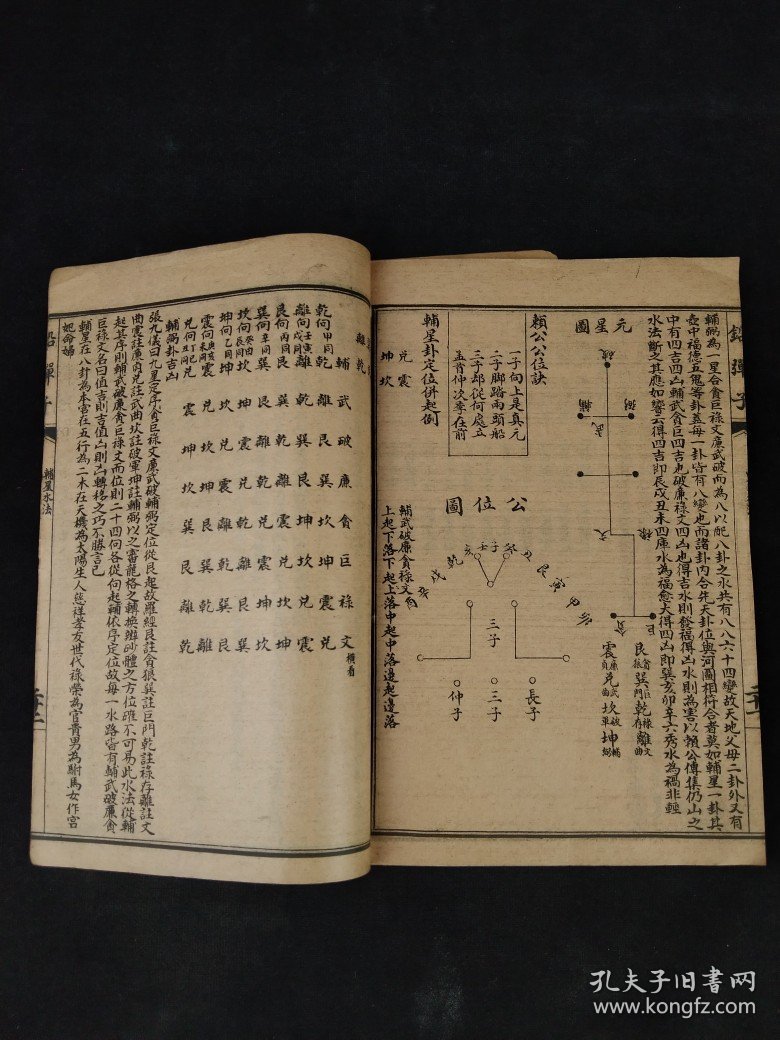 鉛彈子
輔弼為一星合貪巨祿文廉武破而為八以配八卦之水共有八八六十四變故天地父母二卦外又有
壺中福德五鬼等卦蓋每一卦皆有八變也而諸卦內合先天卦位與河圖相符合者莫如輔星一卦其
中有四吉四凶輔武貪巨四吉也破廉祿文四凶也得吉水則發福得凶水則為害以賴公傳集仍山之
水法斷之其應如響云得四吉即辰戌丑未四庫水為福愈大得四凶即巽亥卯辛六秀水為禍非輕
元星圖
破
輔
武
弼
文
祿
貪
巨
艮貪狼巽巨門乾祿存離文曲
震廉貞兌武曲坎破軍坤輔弼
賴公公位訣
一子向上是真元
二子脚踏兩頭船
三子却從何處立
孟首仲次季在前
公位圖
辛戌乾亥壬子癸丑艮寅甲卯
三子
長子
三子
仲子
輔星卦定位併起例
輔武破廉貪祿文
上起下落下起上落中起中落邊起邊落
兌震
坤坎
離乾
輔武破廉貪巨祿文 橫看
乾向甲同乾離艮巽坎坤震兌
離向壬寅戌同離乾巽艮坤坎兌震
艮向丙同艮巽乾離震兌坎坤
巽向辛同巽艮離乾兌震坤坎
坎向癸申辰同坎坤兌震乾離艮巽
坤向乙同坤坎震兌離乾巽艮
震向庚亥未同震兌坤坎艮巽乾離
兌向丁巳丑同兌震坎坤巽艮離乾
輔弼卦吉凶
張九儀曰九星定序貪巨祿文廉武破輔弼定位從艮起故羅經艮註貪狼巽註巨門乾註祿存離註文
曲震註廉貞兌註武曲坎註破軍坤註輔弼以之審龍格之轉換辨砂體之方位確不可易此水法從輔
起其序則輔武破廉貪巨祿文而位則二十四向各從向起輔依序定位故每一水路皆有輔武破廉貪
巨祿文名曰值吉則吉值凶則凶轉移之巧不勝言已
輔星在八卦為本宮在五行為二木在天機為太陽生人慈祥孝友世代祿榮為官貴男為駙馬女作宮
妃命婦
鉛彈子
輔星水法
孔夫子旧书网
https://www.kongfz.com